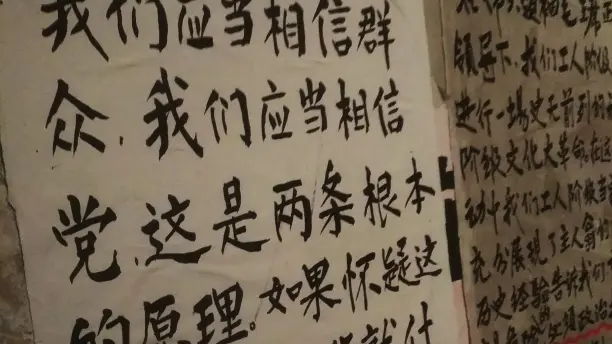 我们应当相信群
众,我们应当相信
党,这是两条根本
的原理。如果怀疑这
领导下,我们工人阶级
进行一场史无前
阶级文化大革命。在这
动中我们工人阶级
充分展现了主人翁的
历史经验告诉我们